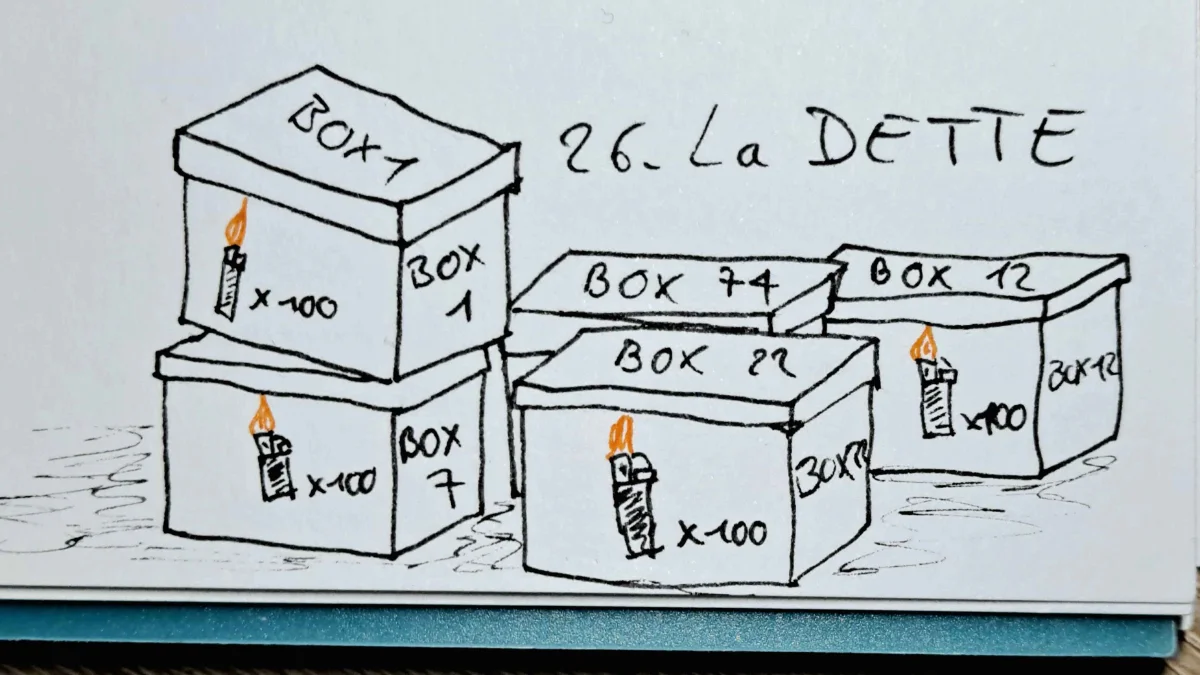 26. La DETTE
BOX 1
BOX
1
x100
BOX
7
x100
BOX 74
BOX 22
BOX 22
x100
BOX 12
BOX 12
x100